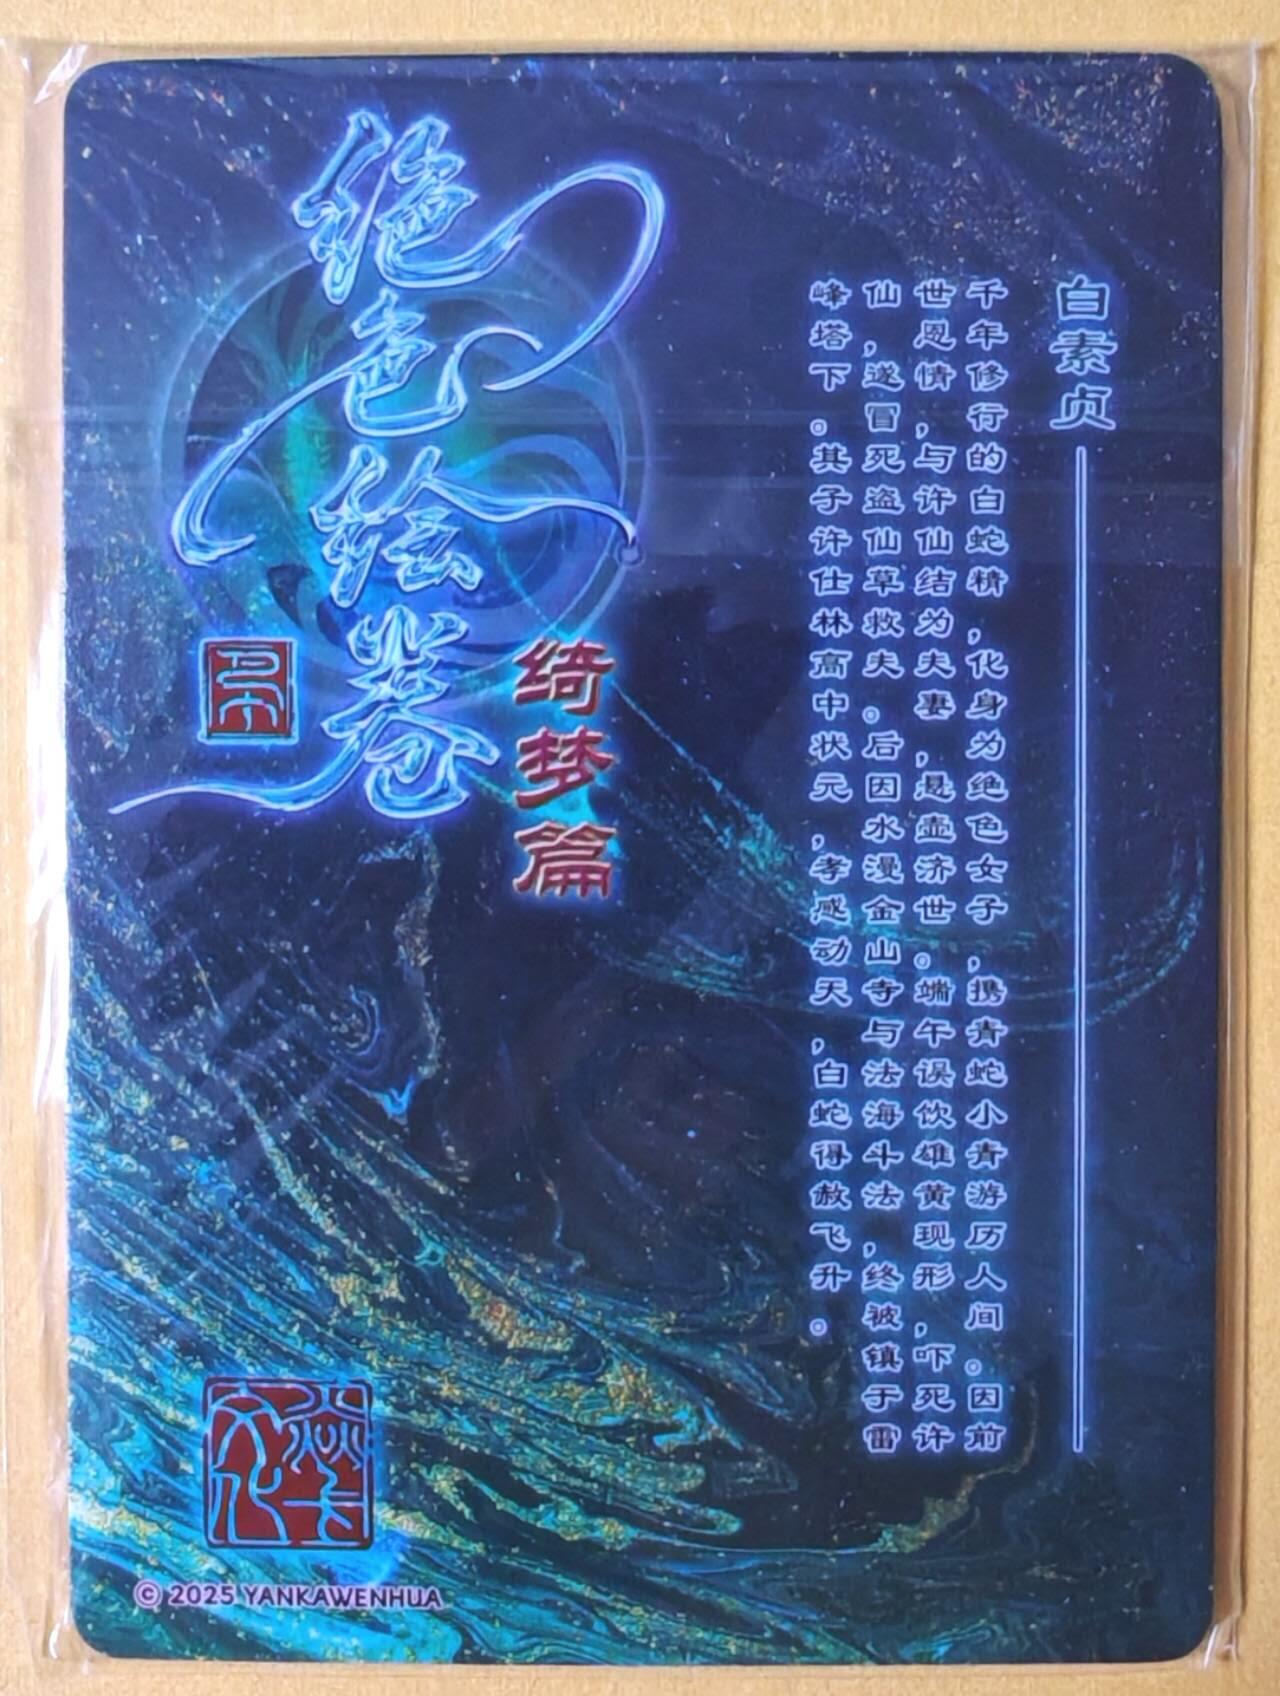 白素贞
千年修行的白蛇精，化身为绝色女子，携青蛇小青游历人间。因前
世恩情，与许仙结为夫妻，悬壶济世。端午误饮雄黄现形，吓死许
仙，遂冒死盗仙草救夫。后因水漫金山寺与法海斗法，终被镇于雷
峰塔下。其子许仕林高中状元，孝感动天，白蛇得赦飞升。
绝色绘卷
绮梦篇
焱卡
文化
© 2025 YANKAWENHUA